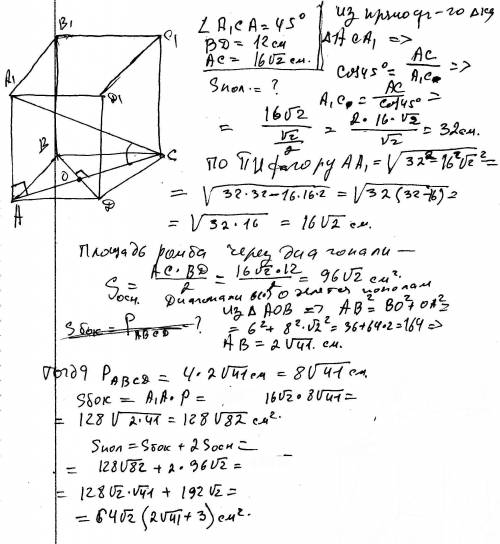 B₁
C₁
A₁
D₁
B
C
O
A
D
∠A₁CA = 45°
BD = 12 см
AC = 16√2 см.
Sпол. = ?
Из прямоуг-го
ΔACA₁ =>
cos45° = AC/A₁C =>
A₁C = AC/cos45° =
= 16√2/(√2/2) = 2·16·√2/√2 = 32 см.
По Пифагору AA₁ = √(32² - 16²√2²) =
= √(32·32 - 16·16·2) = √(32(32-16)) =
= √(32·16) = 16√2 см.
Площадь ромба через диагонали —
Sосн. = AC·BD/2 = 16√2·12/2 = 96√2 см².
Диагонали пополам
Sбок = P ABCD ?
Из ΔAOB => AB² = BO² + OA² =
= 6² + 8²·√2² = 36 + 64·2 = 164 =>
AB = 2√41 см.
тогда P ABCD = 4·2√41 см = 8√41 см.
Sбок = A₁A·P = 16√2·8√41 =
= 128√(2·41) = 128√82 см².
Sпол = Sбок + 2Sосн =
= 128√82 + 2·96√2 =
= 128√2·√41 + 192√2 =
= 64√2(2√41 + 3) см².